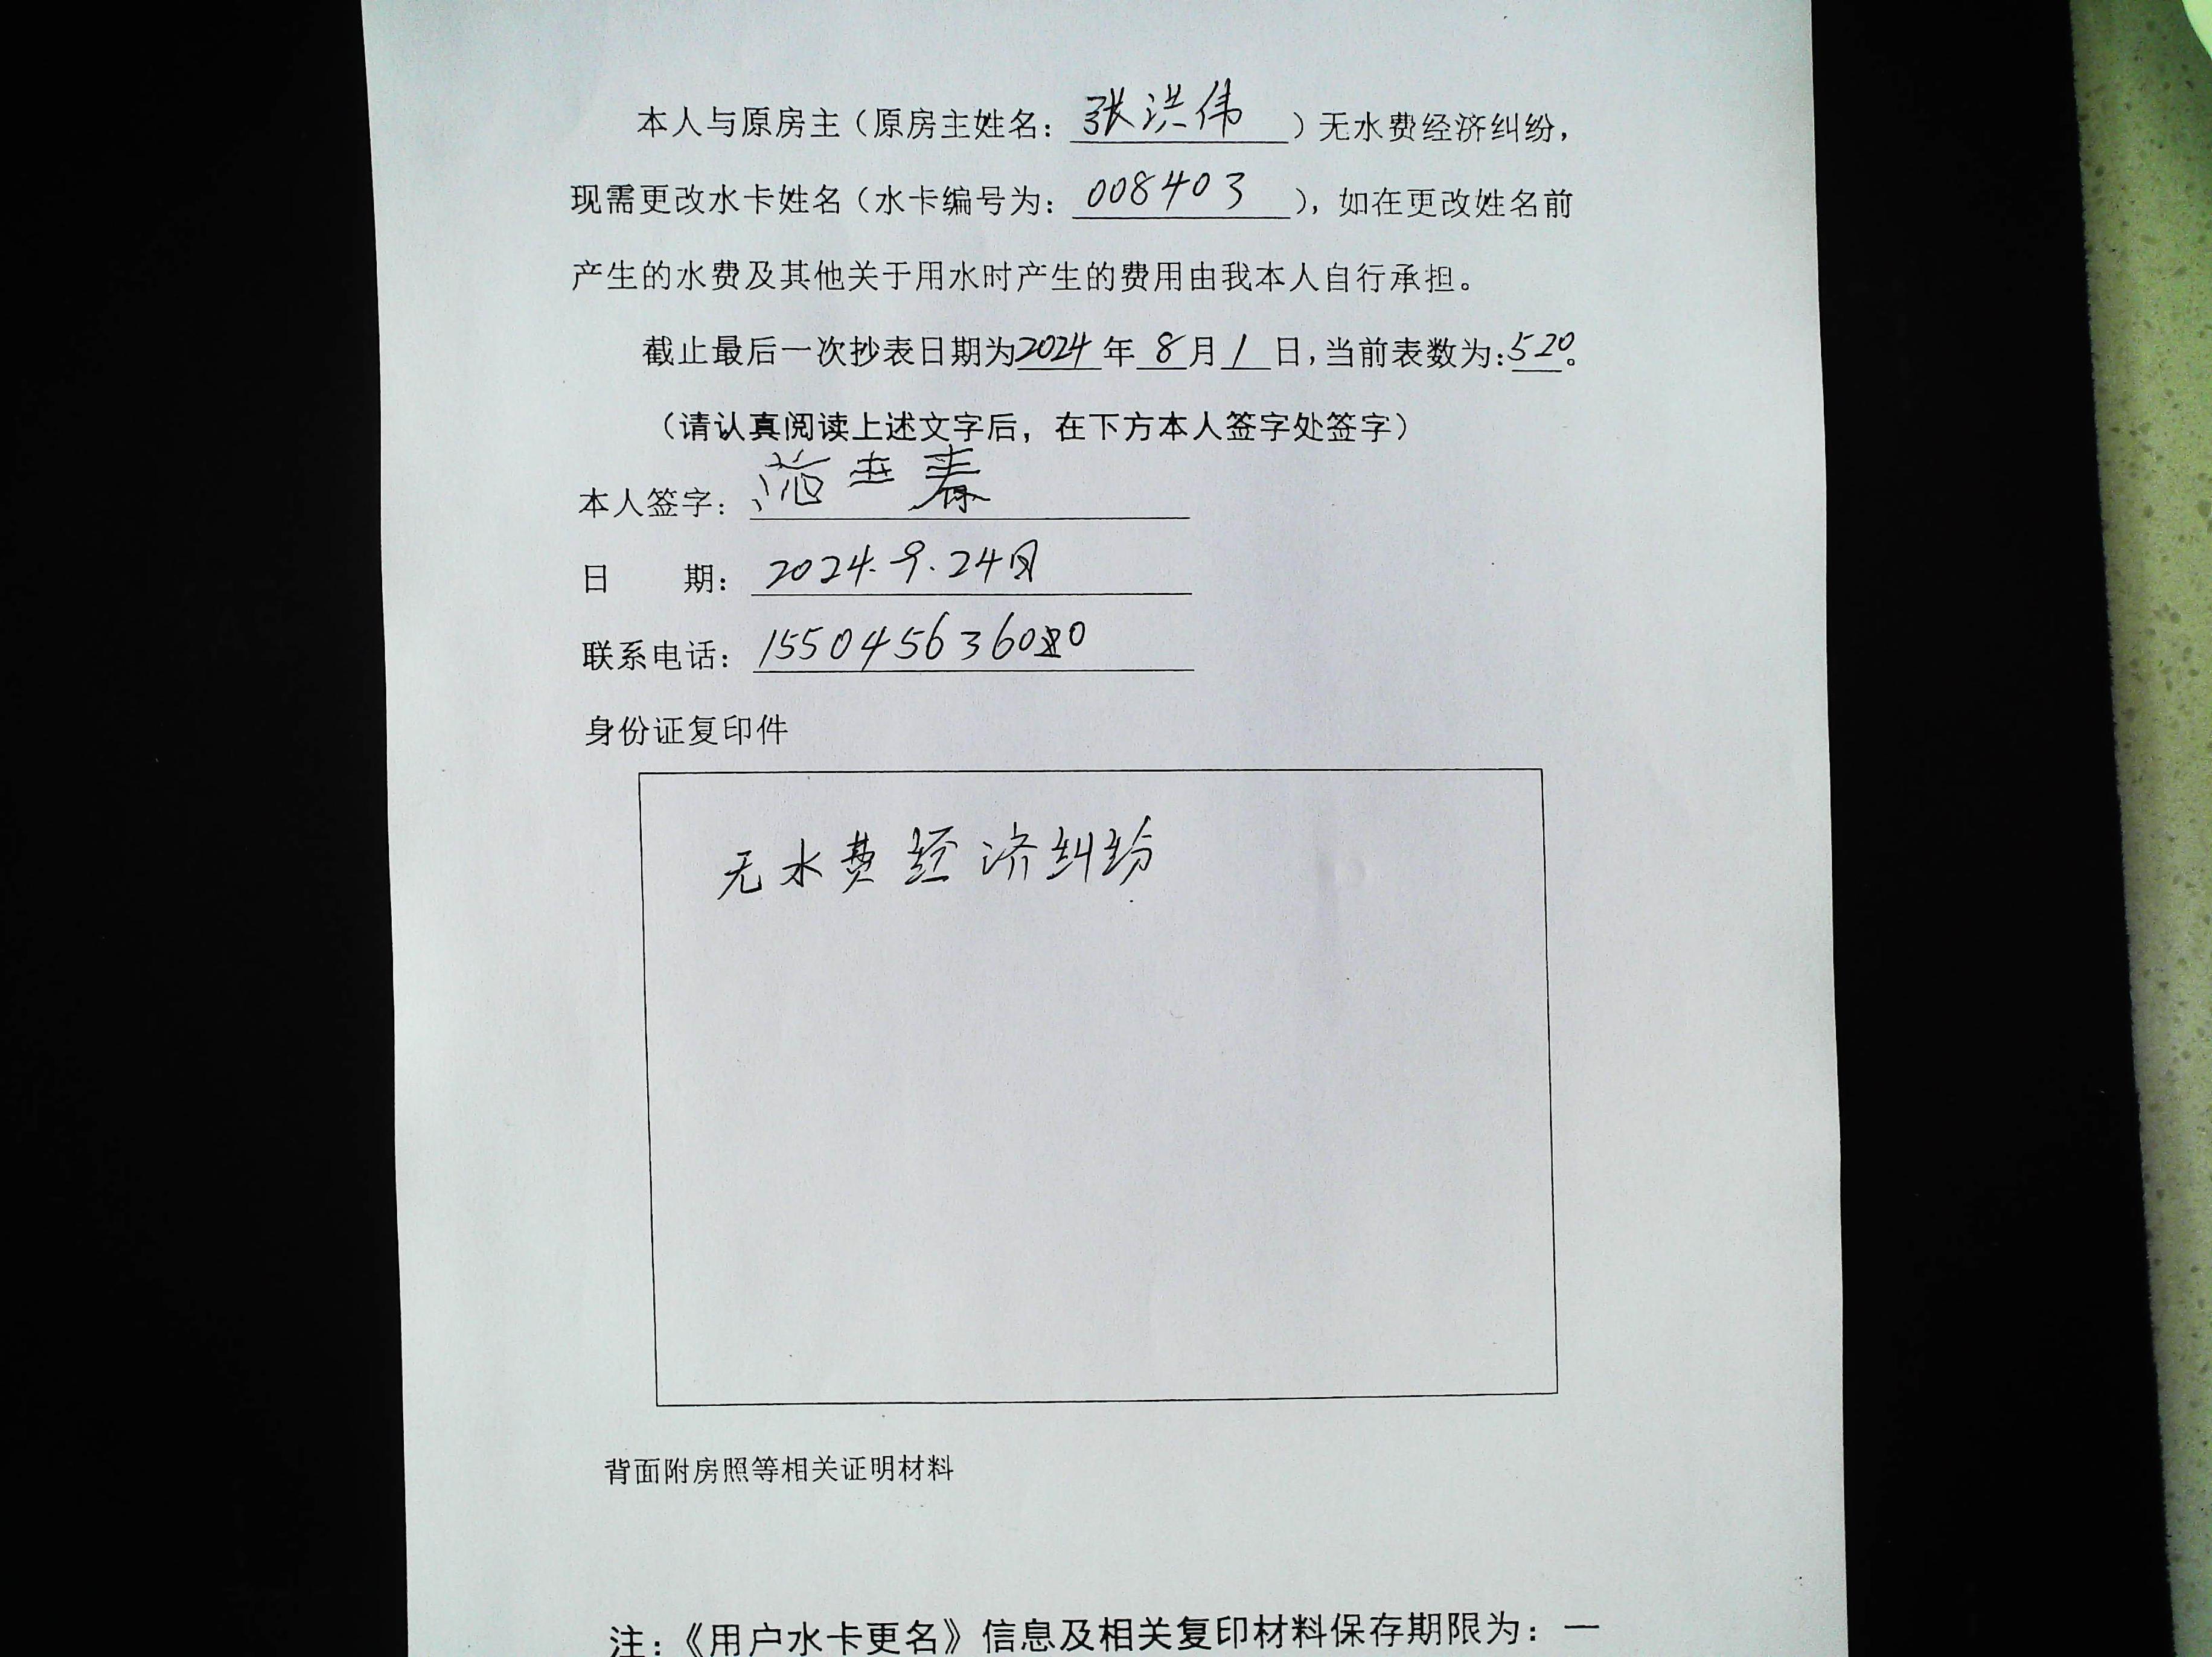 本人与原房主（原房主姓名：张洪伟）无水费经济纠纷，
现需更改水卡姓名（水卡编号为：008403），如在更改姓名前
产生的水费及其他关于用水时产生的费用由我本人自行承担。
截止最后一次抄表日期为2024年8月1日，当前表数为：520。
（请认真阅读上述文字后，在下方本人签字处签字）
本人签字：范世春
日　　期：2024.9.24日
联系电话：
身份证复印件
无水费经济纠纷
背面附房照等相关证明材料
注：《用户水卡更名》信息及相关复印材料保存期限为：一